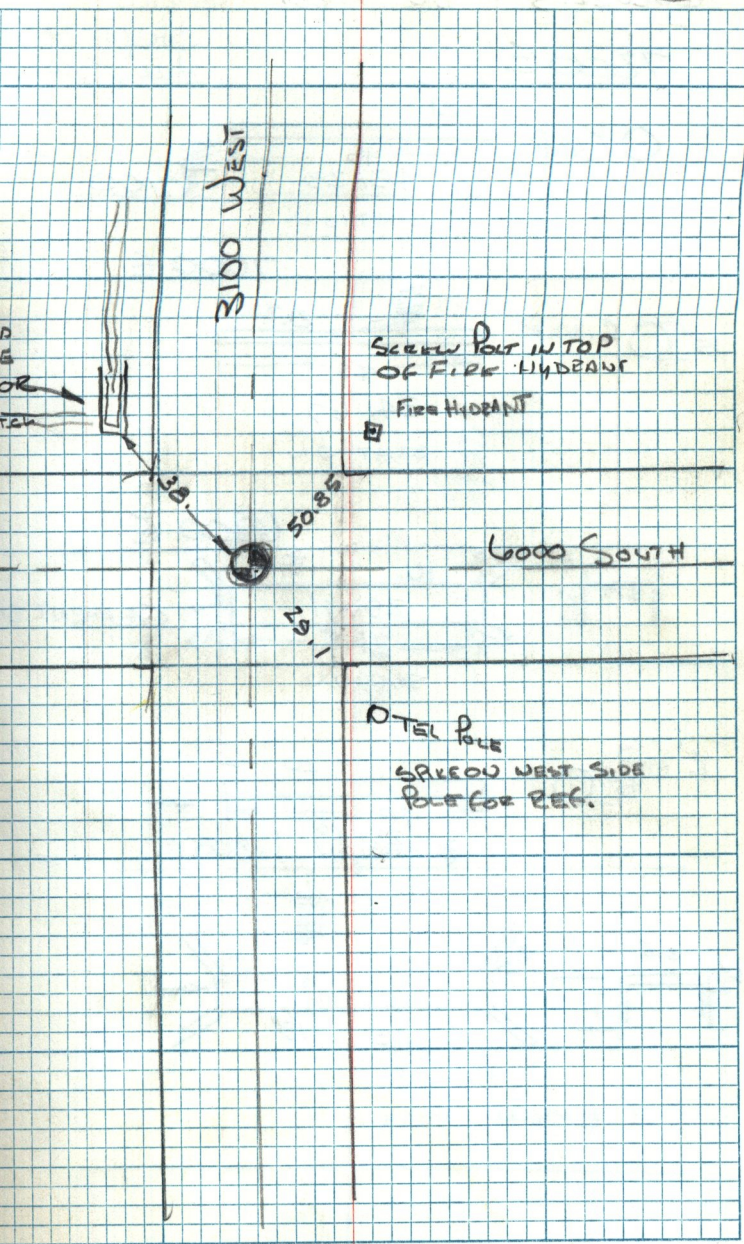 3100 WEST
D
E
OR
TCH
SCREW POLT IN TOP
OF FIRE HYDRANT
FIRE HYDRANT
38.
50.85
6000 SOUTH
29.1
TEL POLE
SPIKE ON WEST SIDE
POLE FOR REF.